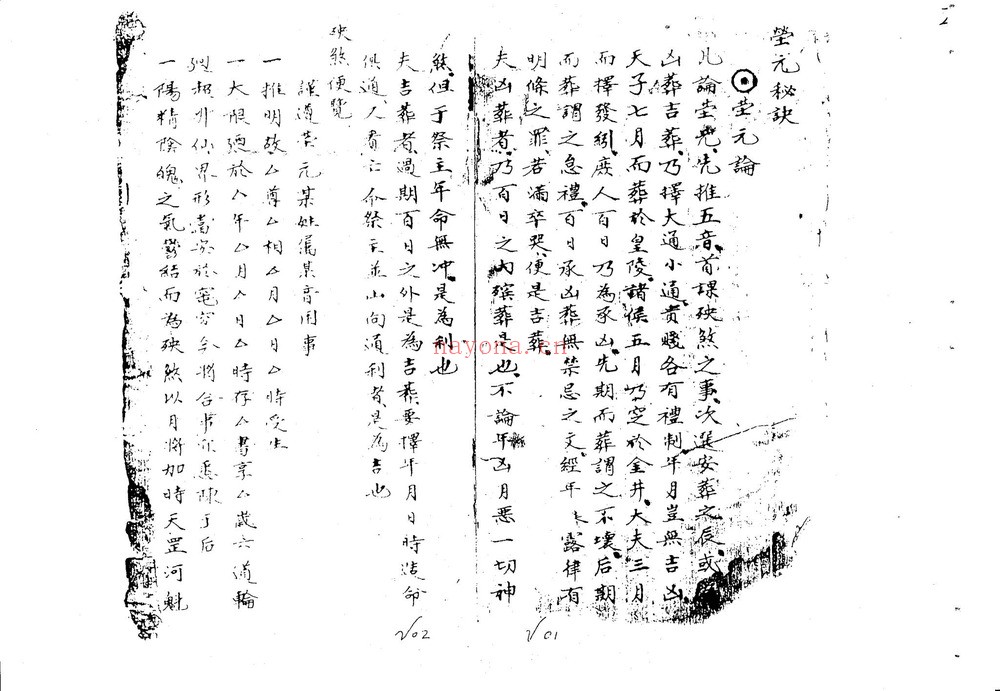 塋元秘訣
塋元論
凡論塋元先推五音首課殃煞之事次選安葬之辰或
凶葬吉葬乃擇大通小通貴賤各有禮制年月豈無吉凶
天子七月而葬於皇陵諸侯五月乃窆於金井大夫三月
而擇發紖庶人百日乃為承凶先期而葬謂之不壞后期
而葬謂之怠禮百日承凶葬無禁忌之文經年露律有
明條之罪若滿卒哭便是吉葬
夫凶葬者乃百日之內殯葬是也不論年凶月惡一切神
煞但于祭主年命無冲是為利也
夫吉葬者過期百日之外是為吉葬要擇年月日時造命
俱通人看亡命祭主並山向通利者是為吉也
殃煞便覽
謹遵塋元某姓屬某音用事
一推明故厶尊厶相厶月厶日厶時受生
一大限廼於厶年厶月厶日厶時存厶書享厶歲六道輪
廻超升仙界形當安於窀穸今將合事宜悉陳于后
一陽精陰魄之氣鬱結而為殃煞以月將加時天罡河魁
nayona.cn
V02
V01